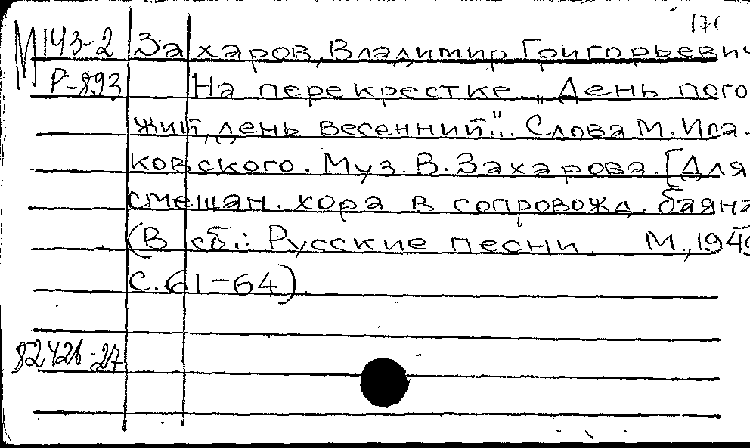 М143-2 Захаров, Владимир Григорьевич
Р-893 На перекрестке „День пого
жий, день весенний"... Слова М. Иса-
ковского. Муз. В. Захарова. [Для
смешан. хора в сопровожд. баяна
(В сб.: Русские песни М., 194
с. 61-64).
82426-27